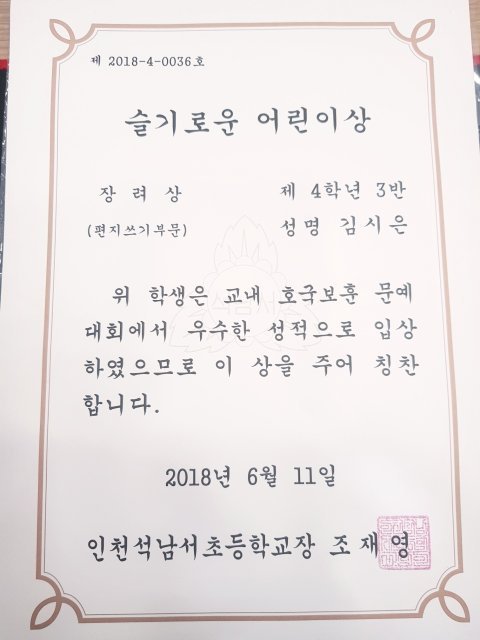 제 2018-4-0036호
슬기로운 어린이상
장 려 상 제 4학년 3반
(편지쓰기부문) 성명 김시은
위 학생은 교내 호국보훈 문예
대회에서 우수한 성적으로 입상
하였으므로 이 상을 주어 칭찬
합니다.
2018년 6월 11일
인천석남서초등학교장 조재영